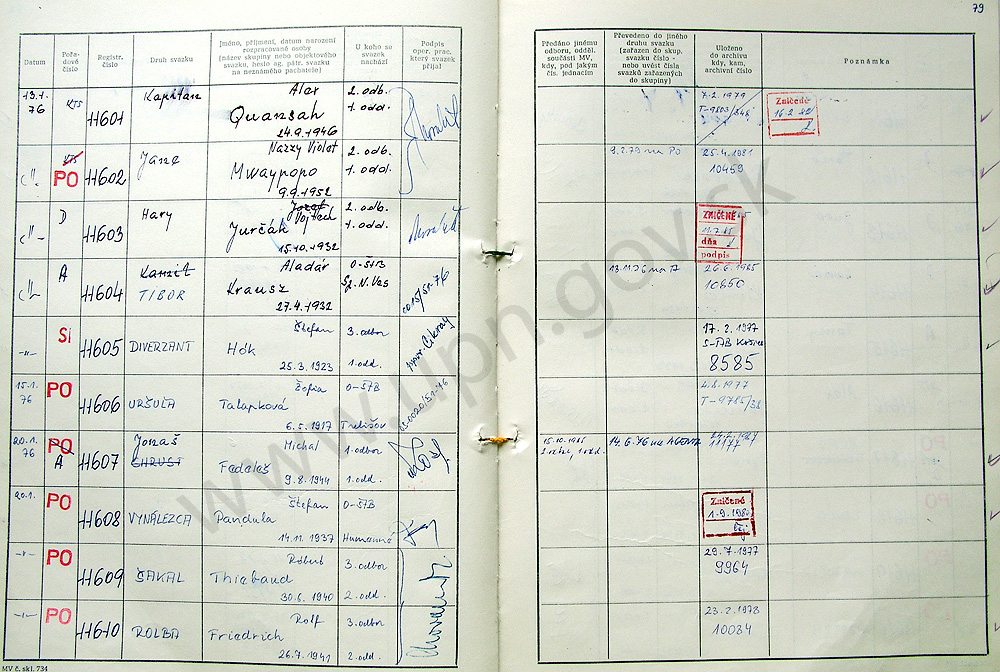 79
Datum
Pořadové číslo
Registr. číslo
Druh svazku
Jméno, příjmení, datum narození
rozpracované osoby
(název skupiny nebo objektového
svazku, heslo ag. pátr. svazku
na neznámého pachatele)
U koho se
svazek
nachází
Podpis
oper. prac.
který svazek
přijal
Předáno jinému
odboru, odděl.
součásti MV,
kdy, pod jakým
čís. jednacím
Převedeno do jiného
druhu svazku
(zařazen do skup.
svazku číslo -
nebo uvést čísla
svazků zařazených
do skupiny)
Uloženo
do archivu
kdy, kam,
archivní číslo
Poznámka
13.1.
76
KTS
11601
Kapitán
Alex
Quansah
24.9.1946
2. odb.
1. odd.
7.2.1979
T-9803
Zničené
16.2.
KTS
PO
11602
Jane
Nazzy Violet
Mwaypopo
9.9.1952
2. odb.
1. odd.
9.2.79 na PO
25.4.1981
10459
D
11603
Hary
Jozef
Vojtech
Jurčák
15.10.1932
2. odb.
1. odd.
ZNIČENÉ
dňa
podpis
A
11604
Kamil
TIBOR
Aladár
Krausz
27.4.1932
O-ŠTB
Sp. N. Ves
13.11.76 na A
26.6.1985
10850
SI
11605
DIVERZANT
Štefan
Hók
25.3.1923
3. odbor
1. odd.
17.2.1977
S-ŠTB Košice
8585
15.1.
76
PO
11606
URŠUĽA
Žofia
Talapková
6.5.1917
O-ŠTB
Trebišov
4.8.1977
T-9785/38
20.1.
76
PO
A
11607
Jonáš
CHRUST
Michal
Fedaleš
9.8.1944
1. odbor
1. odd.
15.10.1985
14.6.76 na AGENTA
24.2.1987
11177
20.1.
PO
11608
VYNÁLEZCA
Štefan
Pandula
14.11.1937
O-ŠTB
Humenné
Zničené
1.9.198
-"-
PO
11609
ŠAKAL
Róbert
Thiebaud
30.6.1940
3. odbor
2. odd.
29.7.1977
9964
-"-
PO
11610
ROLBA
Rolf
Friedrich
26.7.1941
3. odbor
2. odd.
23.2.1978
10034
MV č. skl. 734
www.upn.gov.sk